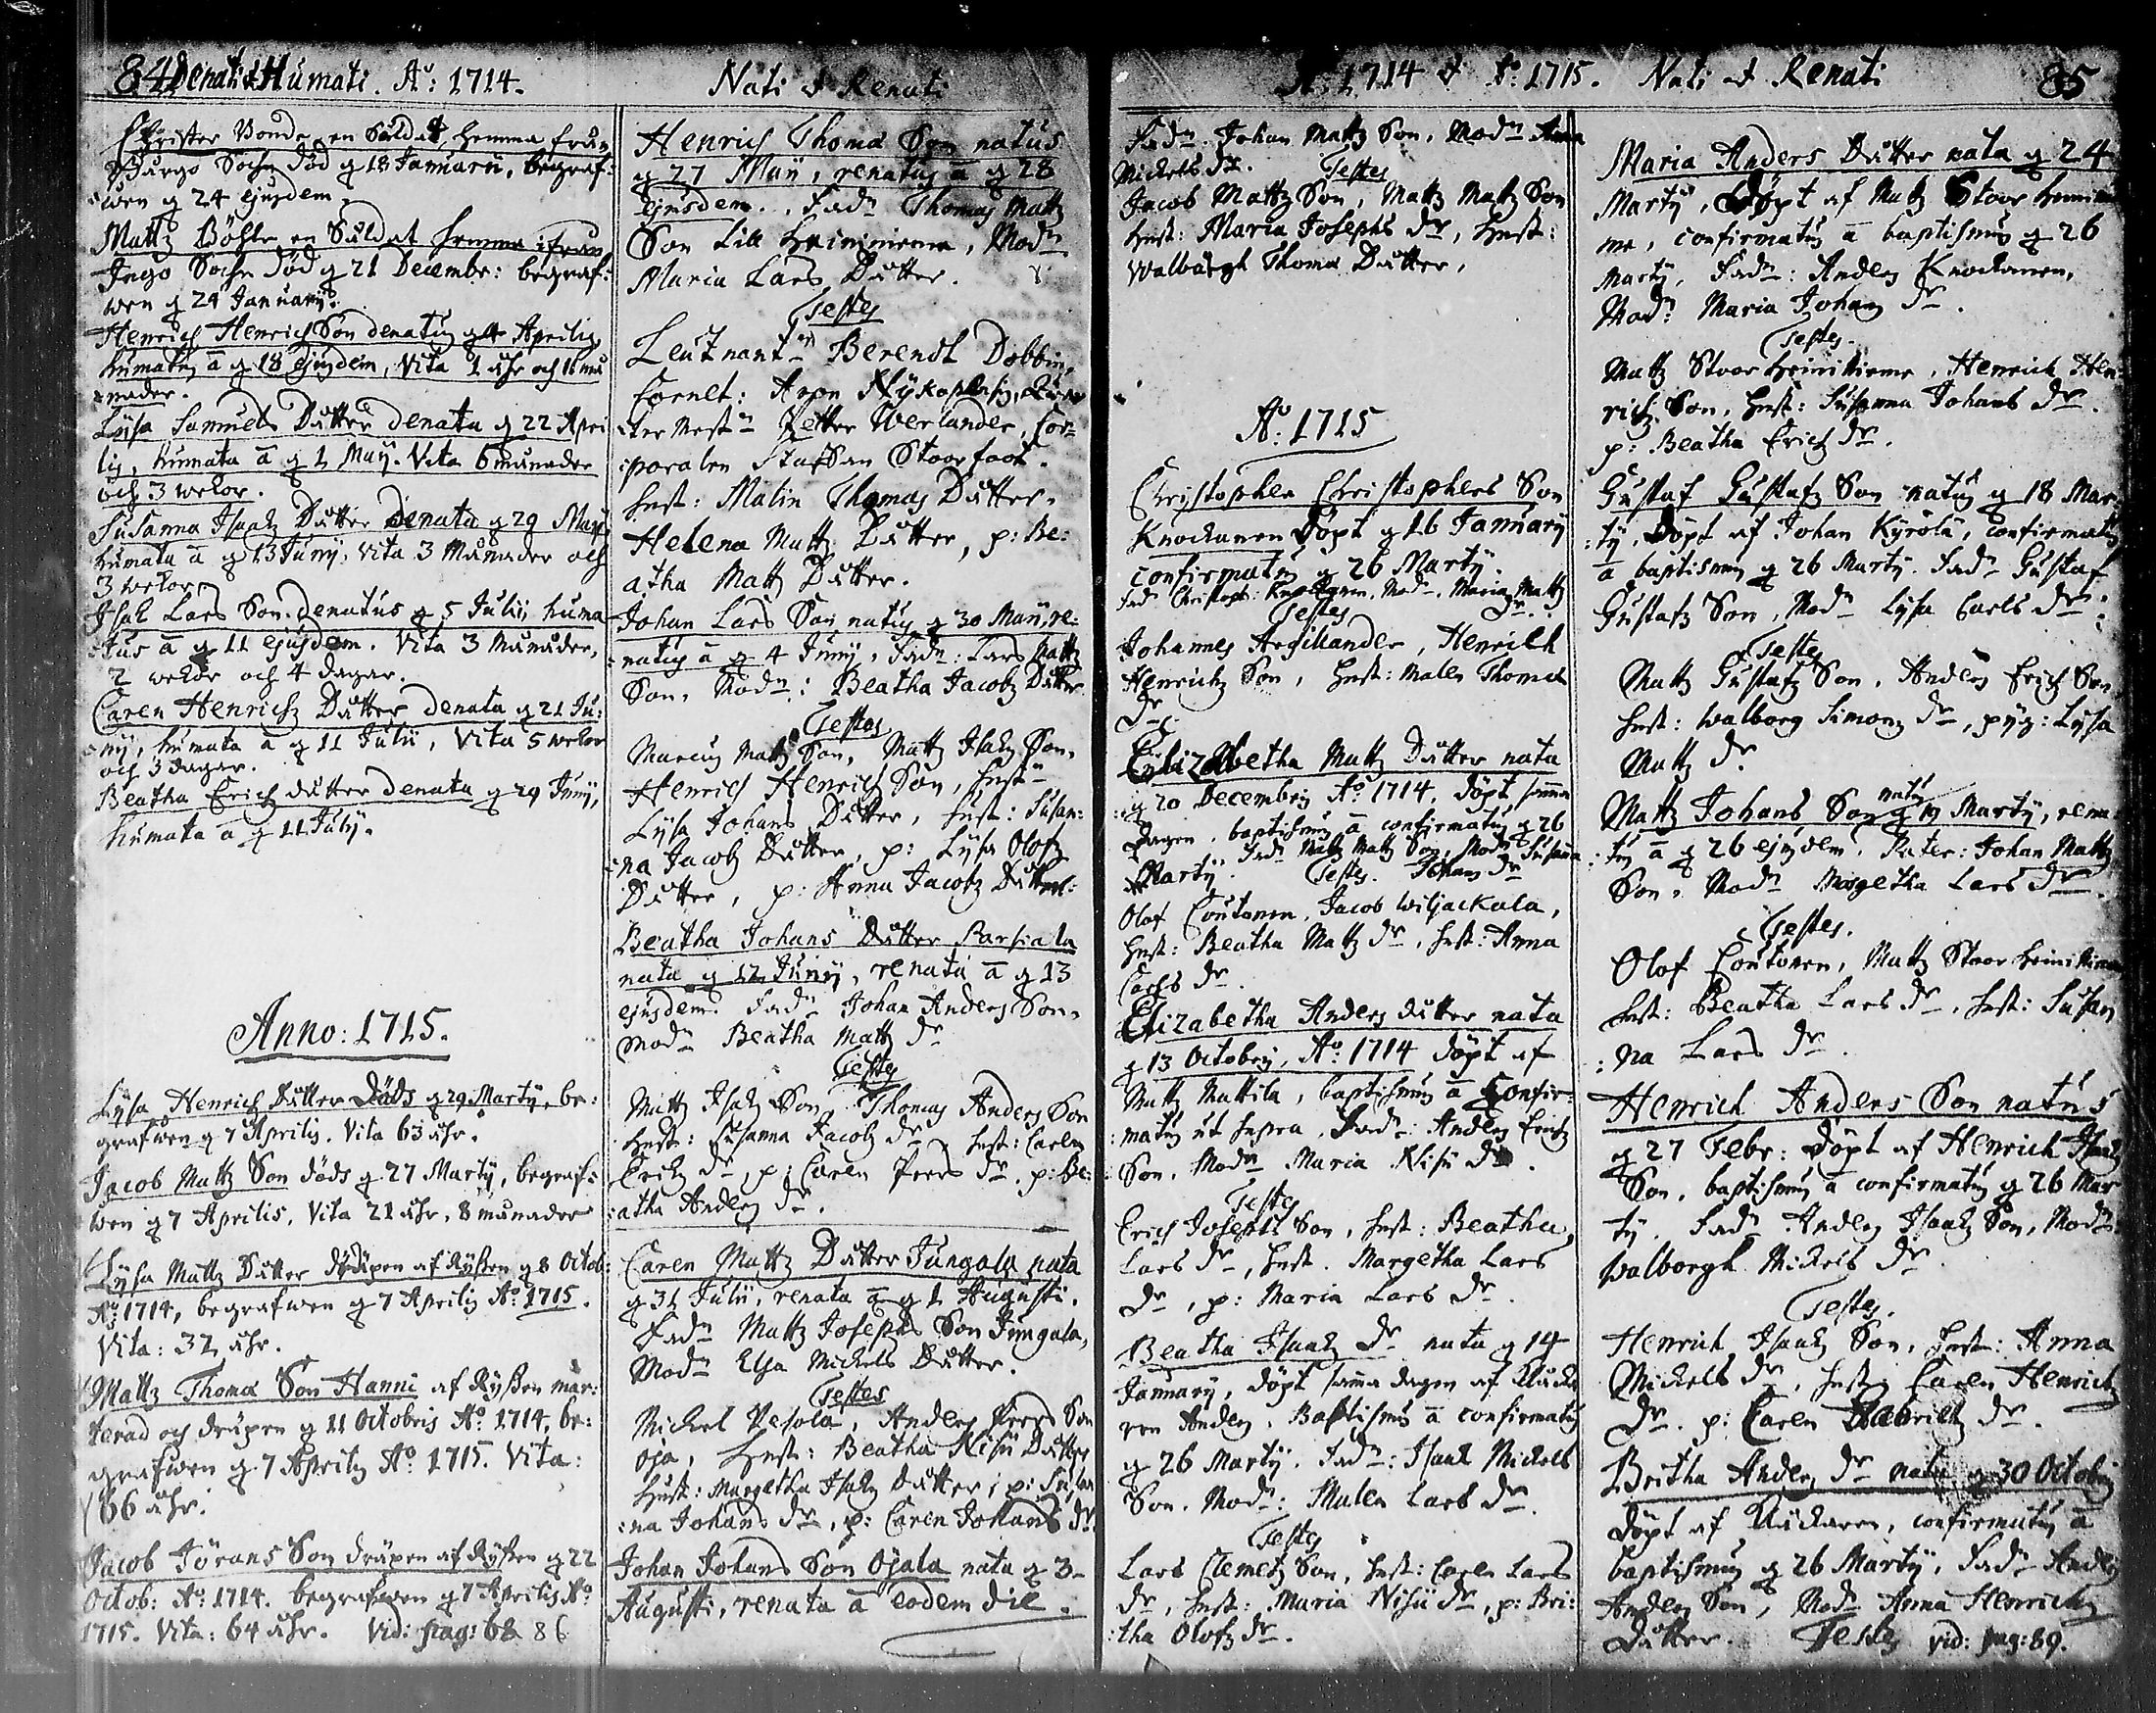 84 Denati & Humati. Aº: 1714.
Christer Bonde en Såldat hemma från
Wurgo Sochn död g 18 Januarii, begraf:
wen g 24 ejusdem.
Mattz Böhle en Såldat hemma ifrån
Ingo Sochn död g 21 Decembr: begraf:
wen g 24 Januarij.
Henrich Henrichson denatus g 4 Aprilis,
humatus ā g 18 ejusdem, Vita 1 åhr och 16 må
nader.
Lijsa Samuels Dåtter denata g 22 Apri
lis, humata ā g 1 Maij. Vita 6 månader
och 3 wekor.
Susanna Isaachz Dåtter denata g 29 Maij
humata ā g 13 Junij, Vita 3 Månader och
3 wekor.
Isak Lars Son denatus g 5 Julii huma
tus ā g 11 ejusdem. Vita 3 Månader,
2 wekor och 4 dagar.
Caren Henrichz Dåtter denata g 21 Ju:
nij, humata ā g 11 Julii, Vita 5 wekor
och 3 dagar.
Beatha Erichz dåtter denata g 29 Junij,
humata ā g 11 Julij.
Anno: 1715.
Lijsa Henrich Dåtter Döds g 29 Martij, be:
grafwen g 7 Aprilis. Vita 63 åhr.
Jacob Mattz Son döds g 27 Martij, begraf:
wen g 7 Aprilis, Vita 21 åhr, 8 månader
Lijsa Mattz Dåtter dräpen af Ryssen g 8 Octob:
Aº: 1714, begrafwen g 7 Aprilis Aº: 1715.
Vita: 32 åhr.
Mattz Thomæ Son Hanni af Ryssen mar:
terad och dräpen g 11 Octobris Aº: 1714, be:
grafwen g 7 Aprilis Aº: 1715. Vita:
66 åhr.
Jacob Jörans Son dräpen af Ryssen g 22
Octob: Aº: 1714. begrafwen g 7 Aprilis Aº
1715. Vita: 64 åhr. Vid: pag: 68 86
Nati & Renati
Henrich Thomæ Son natus
g 27 Maij, renatus ā g 28
ejusdem. Fadn Thomas Mattz
Son Lill Heininiemi, Modn
Maria Lars Dåtter.
Testes
Leutnant Berendt Dobbin,
Cornet: Aron Nykopensis,
ter Mest Petter Werlander, Cor:
poralen Staffan Stoorfoot.
Hust: Malin Thomas Dåtter,
Helena Mattz Dåtter, p: Be:
atha Mattz Dåtter.
Johan Lars Son natus g 30 Maij, re:
natus ā g 4 Junij, Fadn: Lars Mattz
Son, Modn: Beatha Jacobz Dåtter
Testes
Marcus Mattz Son, Mattz Isachz Son,
Henrich Henrich Son, Hust
Lijsa Johans Dåtter, Hust: Susan:
na Jacobz Dåtter, p: Lijsa Olofz
Dåtter, p: Anna Jacobz Dåtter:
Beatha Johans Dåtter Parsiala
nata g 12 Junij, renata ā g 13
ejusdem. Fadn Johan Anders Son,
Modn Beatha Mattz Dr
Testes
Mattz Isachz Son Thomas Anders Son
Hust: Susanna Jacobz dr, Hust: Carin
Erichz dr, p: Caren Peers dr, p: Be:
atha Anders dr.
Caren Mattz Dåtter Jungala nata
g 31 Julii, renata ā g 1 Augusti.
Fadn Mattz Josephs Son Jungala,
Modn Elsa Mickels Dåtter.
Testes
Mickel Vesola, Anders Peers Son
Oja, Hust: Beatha Nisii Dåtter
Hust: Margetha Isachz Dåtter, p: Susan
na Johans dr, p: Caren Johans dr.
Johan Johans Son Ojala nata g 3
Augusti, renata ā eodem die.
Aº: 1714 & Aº: 1715. Nati & Renati 85
Fadn. Johan Mattz Son, Modn Anna
Mickels dr. Testes
Jacob Mattz Son, Mattz Mattz Son
Hust: Maria Josephs dr, Hust:
Walborgh Thomæ Dåtter,
Aº: 1715
Christopher Christophers Son
Knockanen döpt g 16 Januarij
confirmatus g 26 Martij.
Fadn Christoph: Knockanen, Modn. Maria Mattz
Testes dr.
Johannes Argillander, Henrich
Henrichz Son, Hust: Malin Thomæ
Dr.
Elizabetha Mattz Dåtter nata
g 20 Decembris Aº: 1714. döpt samma
dagen, baptismus ā confirmatus g 26
Martij. Fadn Mattz Mattz Son, Modn Susanna
Testes. Johans dr
Olof Coutonen, Jacob Wiljackala,
Hust: Beatha Mattz dr, Hust: Anna
Carls dr.
Elizabetha Anders dåtter nata
g 13 Octobris, Aº: 1714 döpt af
Mattz Mattila, baptismus ā Confir:
matus ut supra, Fadn: Anders Erichz
Son, Modn Maria Nisii dr.
Testes
Erich Josephs Son, Hust: Beatha
Lars dr, Hust. Margetha Lars
Dr, p: Maria Lars dr.
Beatha Isaachz dr nata g 14
Januarij, döpt samma dagen af Klåcka
ren Anders. Baptismus ā confirmatus
g 26 Martij. Fadn: Isaac Mickels
Son. Modn: Malin Lars dr
Testes
Lars Clemetz Son, Hust: Caren Lars
dr, Hust: Maria Nisii dr, p: Bri:
tha Olofz dr.
Maria Anders Dåtter nata g 24
Martij, döpt af Mattz Stoor Heinnie
mi, confirmatus ā baptismus g 26
Martij, Fadn: Anders Knockanen,
Modn: Maria Johans dr.
Testes.
Mattz Stoor Heininiemi, Henrich Hen:
richz Son, Hust: Susanna Johans dr.
p: Beatha Erichz dr.
Gustaf Gustafz Son natus g 18 Mar:
tij, Döpt af Johan Kyrölä, confirmatus
ā baptismus g 26 Martij. Fadn Gustaf
Gustafz Son, Modn Lijsa Carls dr.
Testes
Mattz Gustafz Son, Anders Erich Son
Hust: Walborg Simons dr, pyg: Lijsa
Mattz dr.
Mattz Johans Son natus g 19 Martij, rena
tus ā g 26 ejusdem. Pater: Johan Mattz
Son, Modn Margetha Lars dr.
Testes.
Olof Coutonen, Mattz Stoor Heininiemi
Hust: Beatha Lars dr, Hust: Susan
na Lars dr.
Henrich Anders Son natus
g 27 Febr: döpt af Henrich Isachz
Son, baptismus ā confirmatus g 26 Mar
tij. Fadn Anders Isaachz Son, Modn
Walborgh Mickels dr
Testes.
Henrich Isaachz Son, Hust: Anna
Mickels dr, Hust: Caren Henrichz
dr. p: Caren Henrichz dr.
Britha Anders dr nata g 30 Octobris
döpt af Klåckaren, confirmatus ā
baptismus g 26 Martij, Fadn Anders
Anders Son, Modn Anna Henrichz
Dåtter. Testes vid: pag: 89.